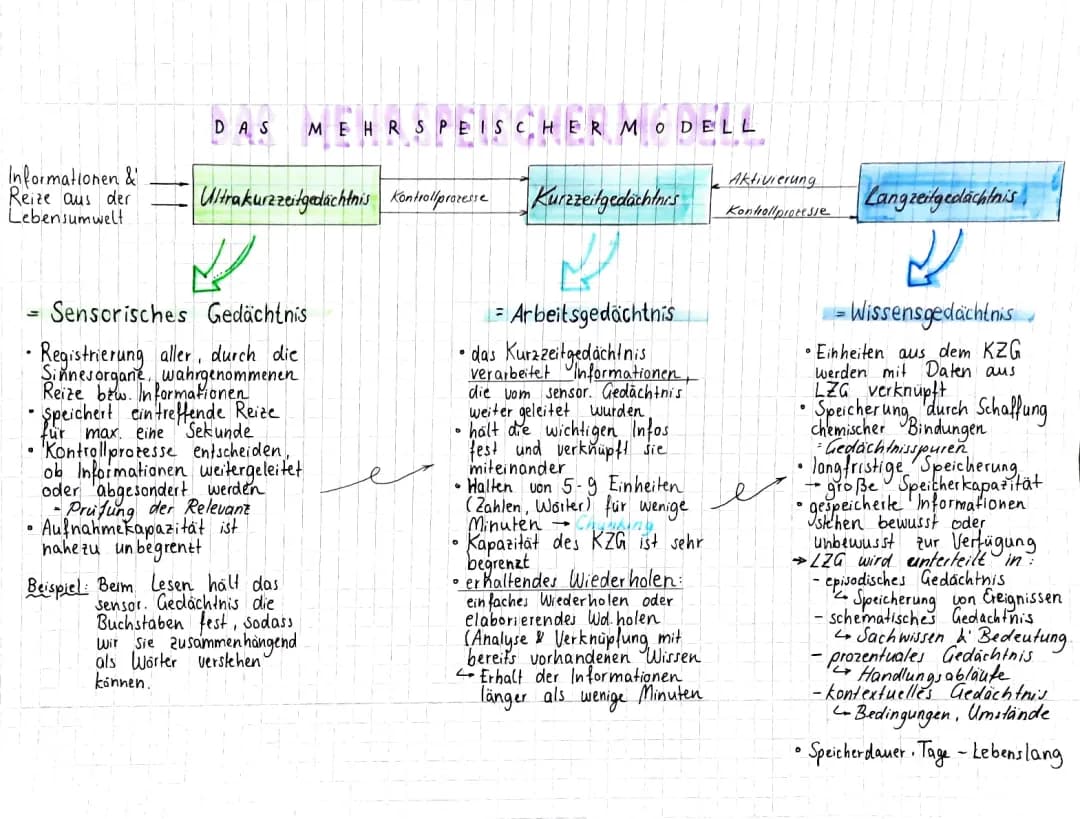 DAS MEHRSPEISCHERMODELL
Informationen &
Reize aus der
Lebensumwelt
Ultrakurzzeitgedächtnis
Kontrollprozesse
Kurzzeitgedächtnis
Aktivierung
Kontrollprozesse
Langzeitgedächtnis
= Sensorisches Gedächtnis
• Registrierung aller, durch die
Sinnesorgane, wahrgenommenen
Reize bzw. Informationen
• speichert eintreffende Reize
für max. eine Sekunde
• Kontrollprozesse entscheiden,
ob Informationen weitergeleitet
oder abgesondert werden
- Prüfung der Relevanz
• Aufnahmekapazität ist
nahezu unbegrenzt
Beispiel: Beim Lesen hält das
sensor. Gedächtnis die
Buchstaben fest, sodass
wir sie zusammenhängend
als Wörter verstehen
können.
= Arbeitsgedächtnis
• das Kurzzeitgedächtnis
verarbeitet Informationen,
die vom sensor. Gedächtnis
weiter geleitet wurden
• hält die wichtigen Infos
fest und verknüpft sie
miteinander
• Halten von 5-9 Einheiten
(Zahlen, Wörter) für wenige
Minuten → Chunking
• Kapazität des KZG ist sehr
begrenzt
• erhaltendes Wiederholen:
einfaches Wiederholen oder
elaborierendes Wd.holen
(Analyse & Verknüpfung mit
bereits vorhandenen Wissen
↳ Erhalt der Informationen
länger als wenige Minuten
= Wissensgedächtnis
• Einheiten aus dem KZG
werden mit Daten aus
LZG verknüpft
• Speicherung durch Schaffung
chemischer Bindungen
= Gedächtnisspuren
• langfristige Speicherung
→ große Speicherkapazität
• gespeicherte Informationen
stehen bewusst oder
unbewusst zur Verfügung
→ LZG wird unterteilt in:
- episodisches Gedächtnis
↳ Speicherung von Ereignissen
- schematisches Gedächtnis
↳ Sachwissen & Bedeutung
- prozentuales Gedächtnis
↳ Handlungsabläufe
- kontextuelles Gedächtnis
↳ Bedingungen, Umstände
• Speicherdauer: Tage - Lebenslang